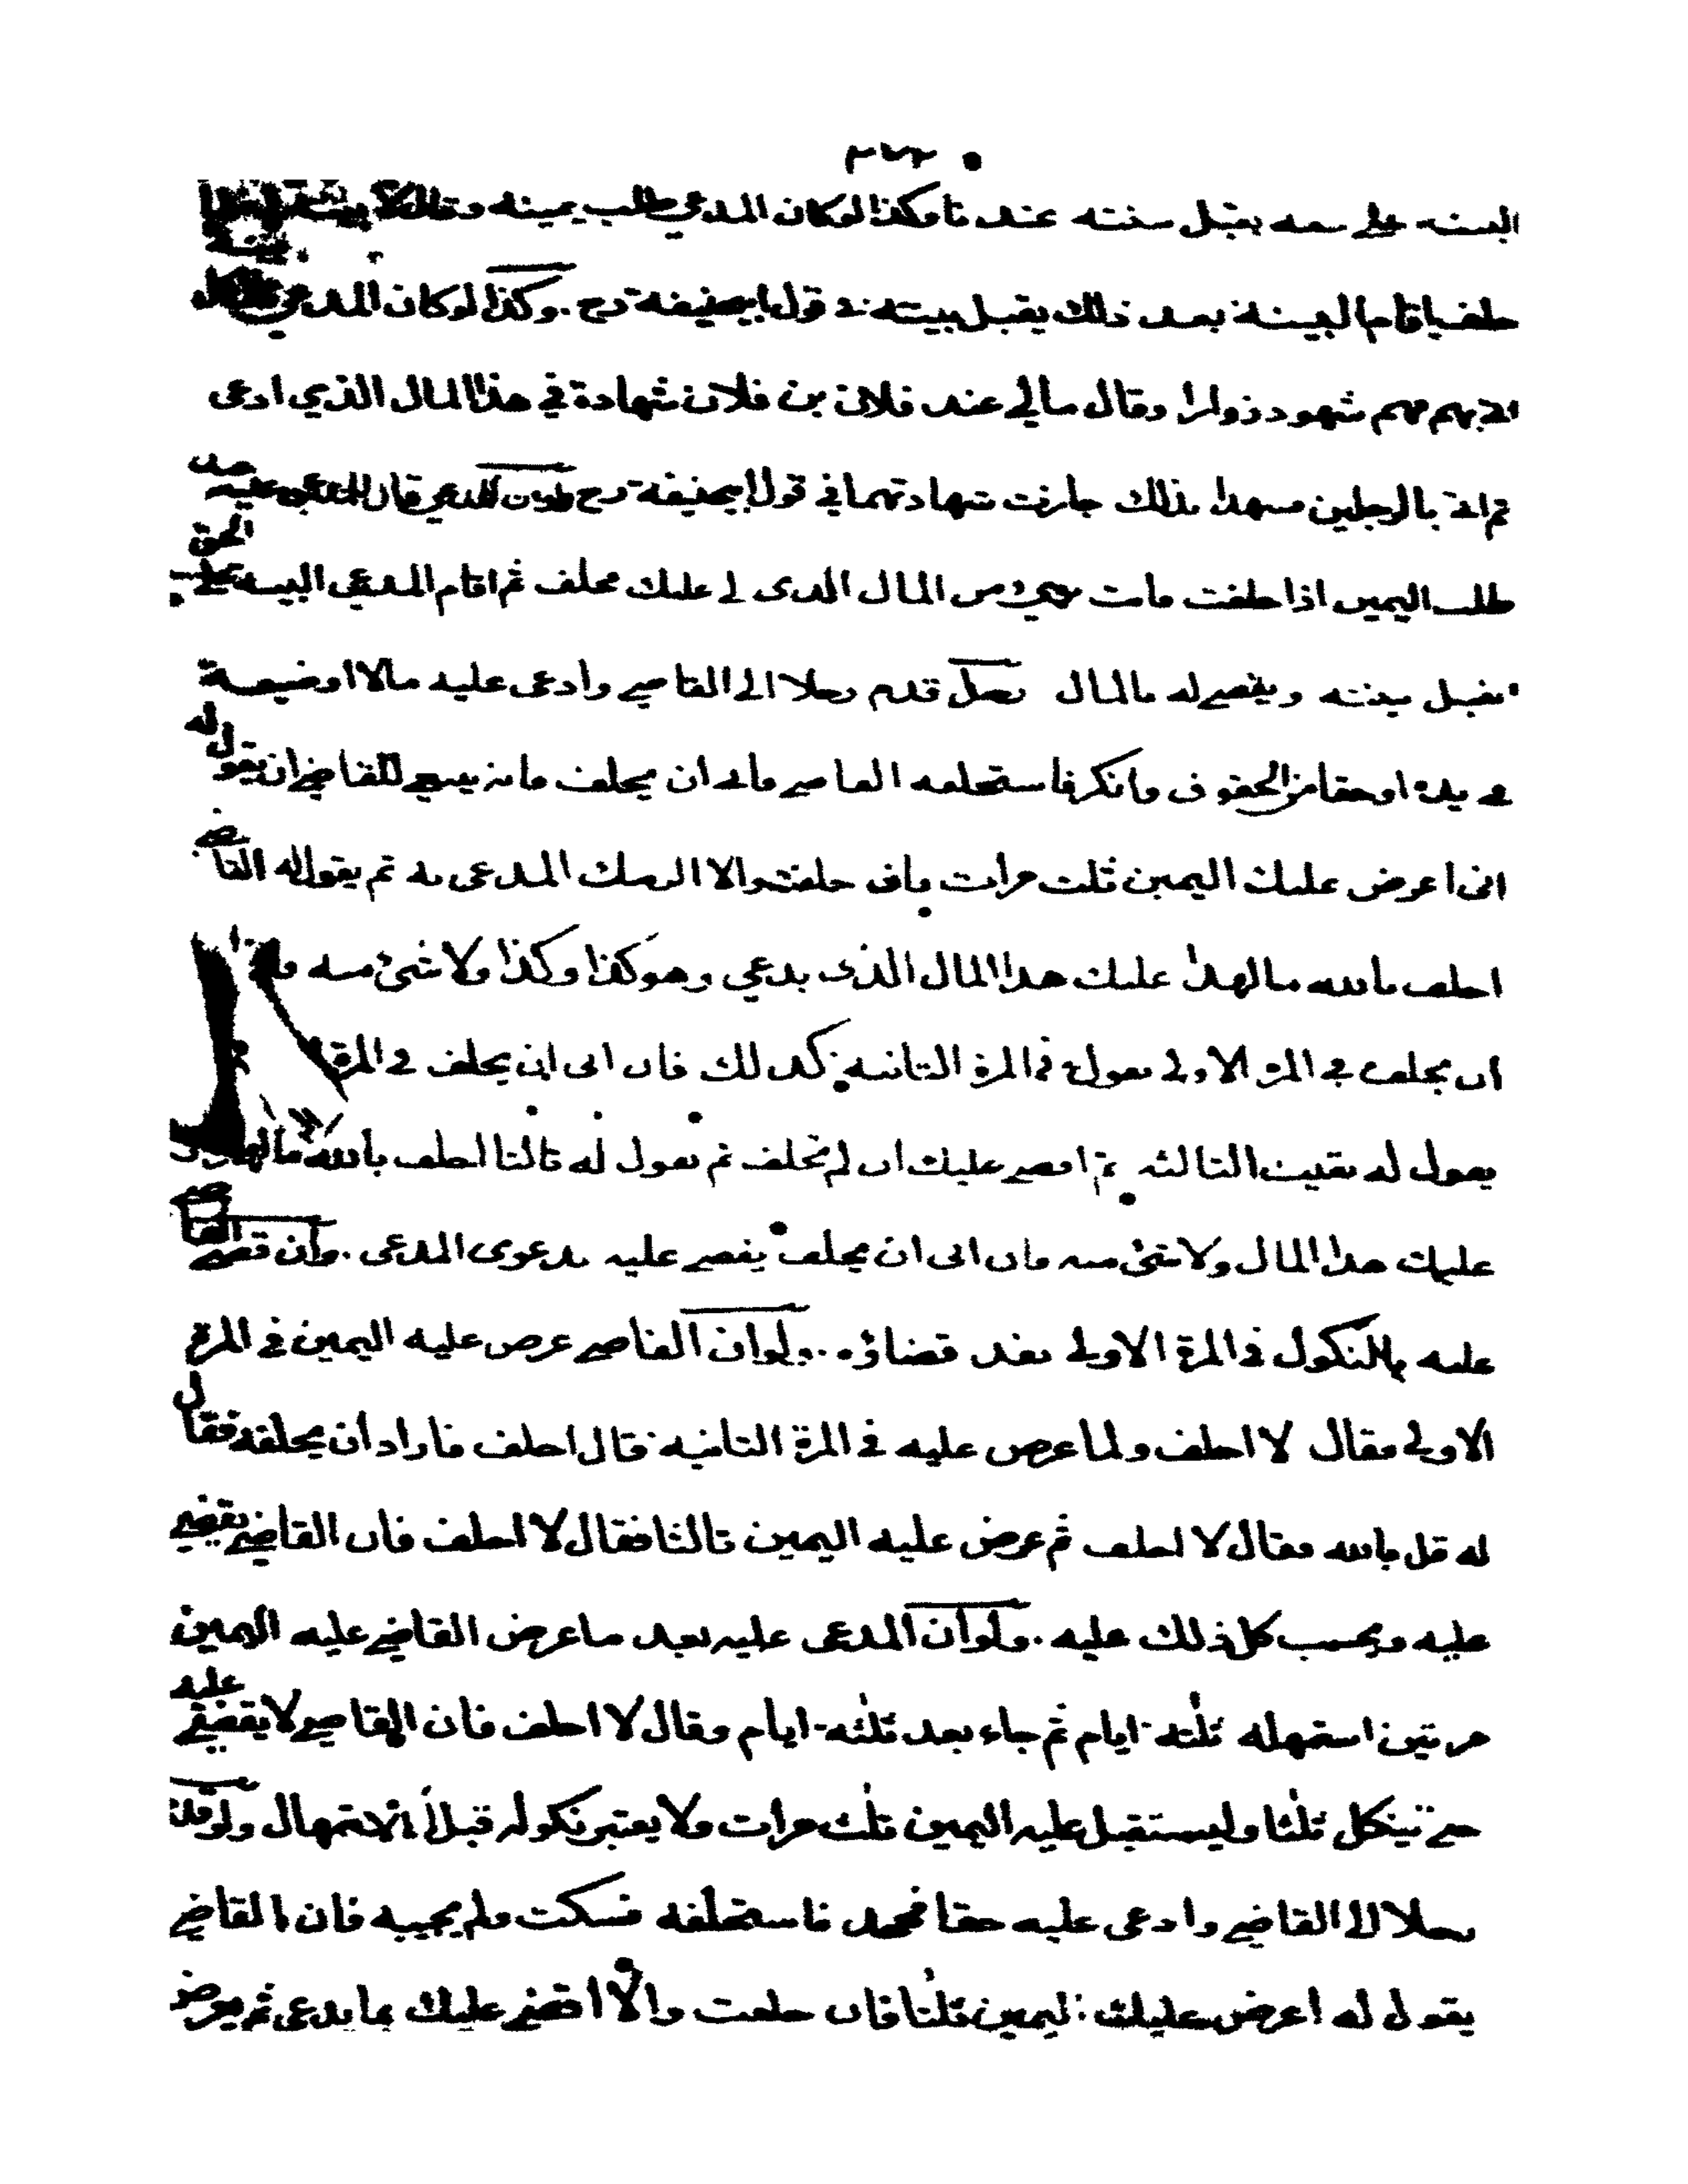 البينة على حقه يقبل بينته عندنا وكذا لو كان المدعي طلب يمينه وقال لا
حلف اقام البينة بعد ذلك يقبل بينته في قول ابيحنيفة رح . وكذا لو كان المدعي
شهود زور وقال مالي عند فلان بن فلان شهادة في هذا المال الذي ادعى
ثم اتى بالرجلين فشهدا بذلك جازت شهادتهما في قول ابيحنيفة رح المدعي عليه
طلب اليمين اذا حلفت فانت برئ من المال الذى لي عليك فحلف ثم اقام المدعي البينة على الحق
يقبل بينته ويقضي له بالمال رجل قدم رجلا الى القاضي وادعى عليه مالا اوضيعة
في يده اوحقا من الحقوق وانكر فاستحلفه القاضي فابى ان يحلف فانه ينبغي للقاضي ان يقول له
انى اعرض عليك اليمين ثلث مرات فان حلفت والا الزمتك المدعى به ثم يقول له القاضي
احلف بالله ما لهذا عليك هذا المال الذى يدعي وهو كذا وكذا ولا شئ منه
ان يحلف في المرة الاولى يقول في المرة الثانية كذلك فان ابى ان يحلف في المرة
يقول له بقيت الثالثة ثم اقضي عليك ان لم تحلف ثم يقول له ثالثا احلف بالله ما لهذا
عليك هذا المال ولا شئ منه فان ابى ان يحلف يقضي عليه بدعوى المدعى . وان قضى القاضي
عليه بالنكول في المرة الاولى نفذ قضاؤه . ولو ان القاضي عرض عليه اليمين في المرة
الاولى فقال لا احلف ولما عرض عليه في المرة الثانية قال احلف فاراد ان يحلفه فقال
له قل بالله فقال لا احلف ثم عرض عليه اليمين ثالثا فقال لا احلف فان القاضي يقضي
عليه ويحسب كل ذلك عليه . ولو ان المدعى عليه بعد ما عرض القاضي عليه اليمين
مرتين استمهله ثلثة ايام ثم جاء بعد ثلثة ايام وقال لا احلف فان القاضي لا يقضي عليه
حتى ينكل ثلثا وليستقبل عليه اليمين ثلث مرات ولا يعتبر نكوله قبل الاستمهال ولو
رجلا الى القاضي وادعى عليه حقا فجحد فاستحلفه فسكت ولم يجيبه فان القاضي
يقول له اعرض عليك اليمين ثلثا فان حلفت والا اقضي عليك بما يدعى ثم يعرض